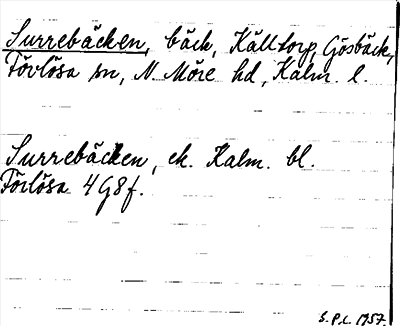 Surrebäcken, bäck, Källtorp, Gösbäck,
Förlösa sn, N. Möre hd, Kalm. l.
Surrebäcken, ek. Kalm. bl.
Förlösa 4G8f.
S.P.L. 1957.